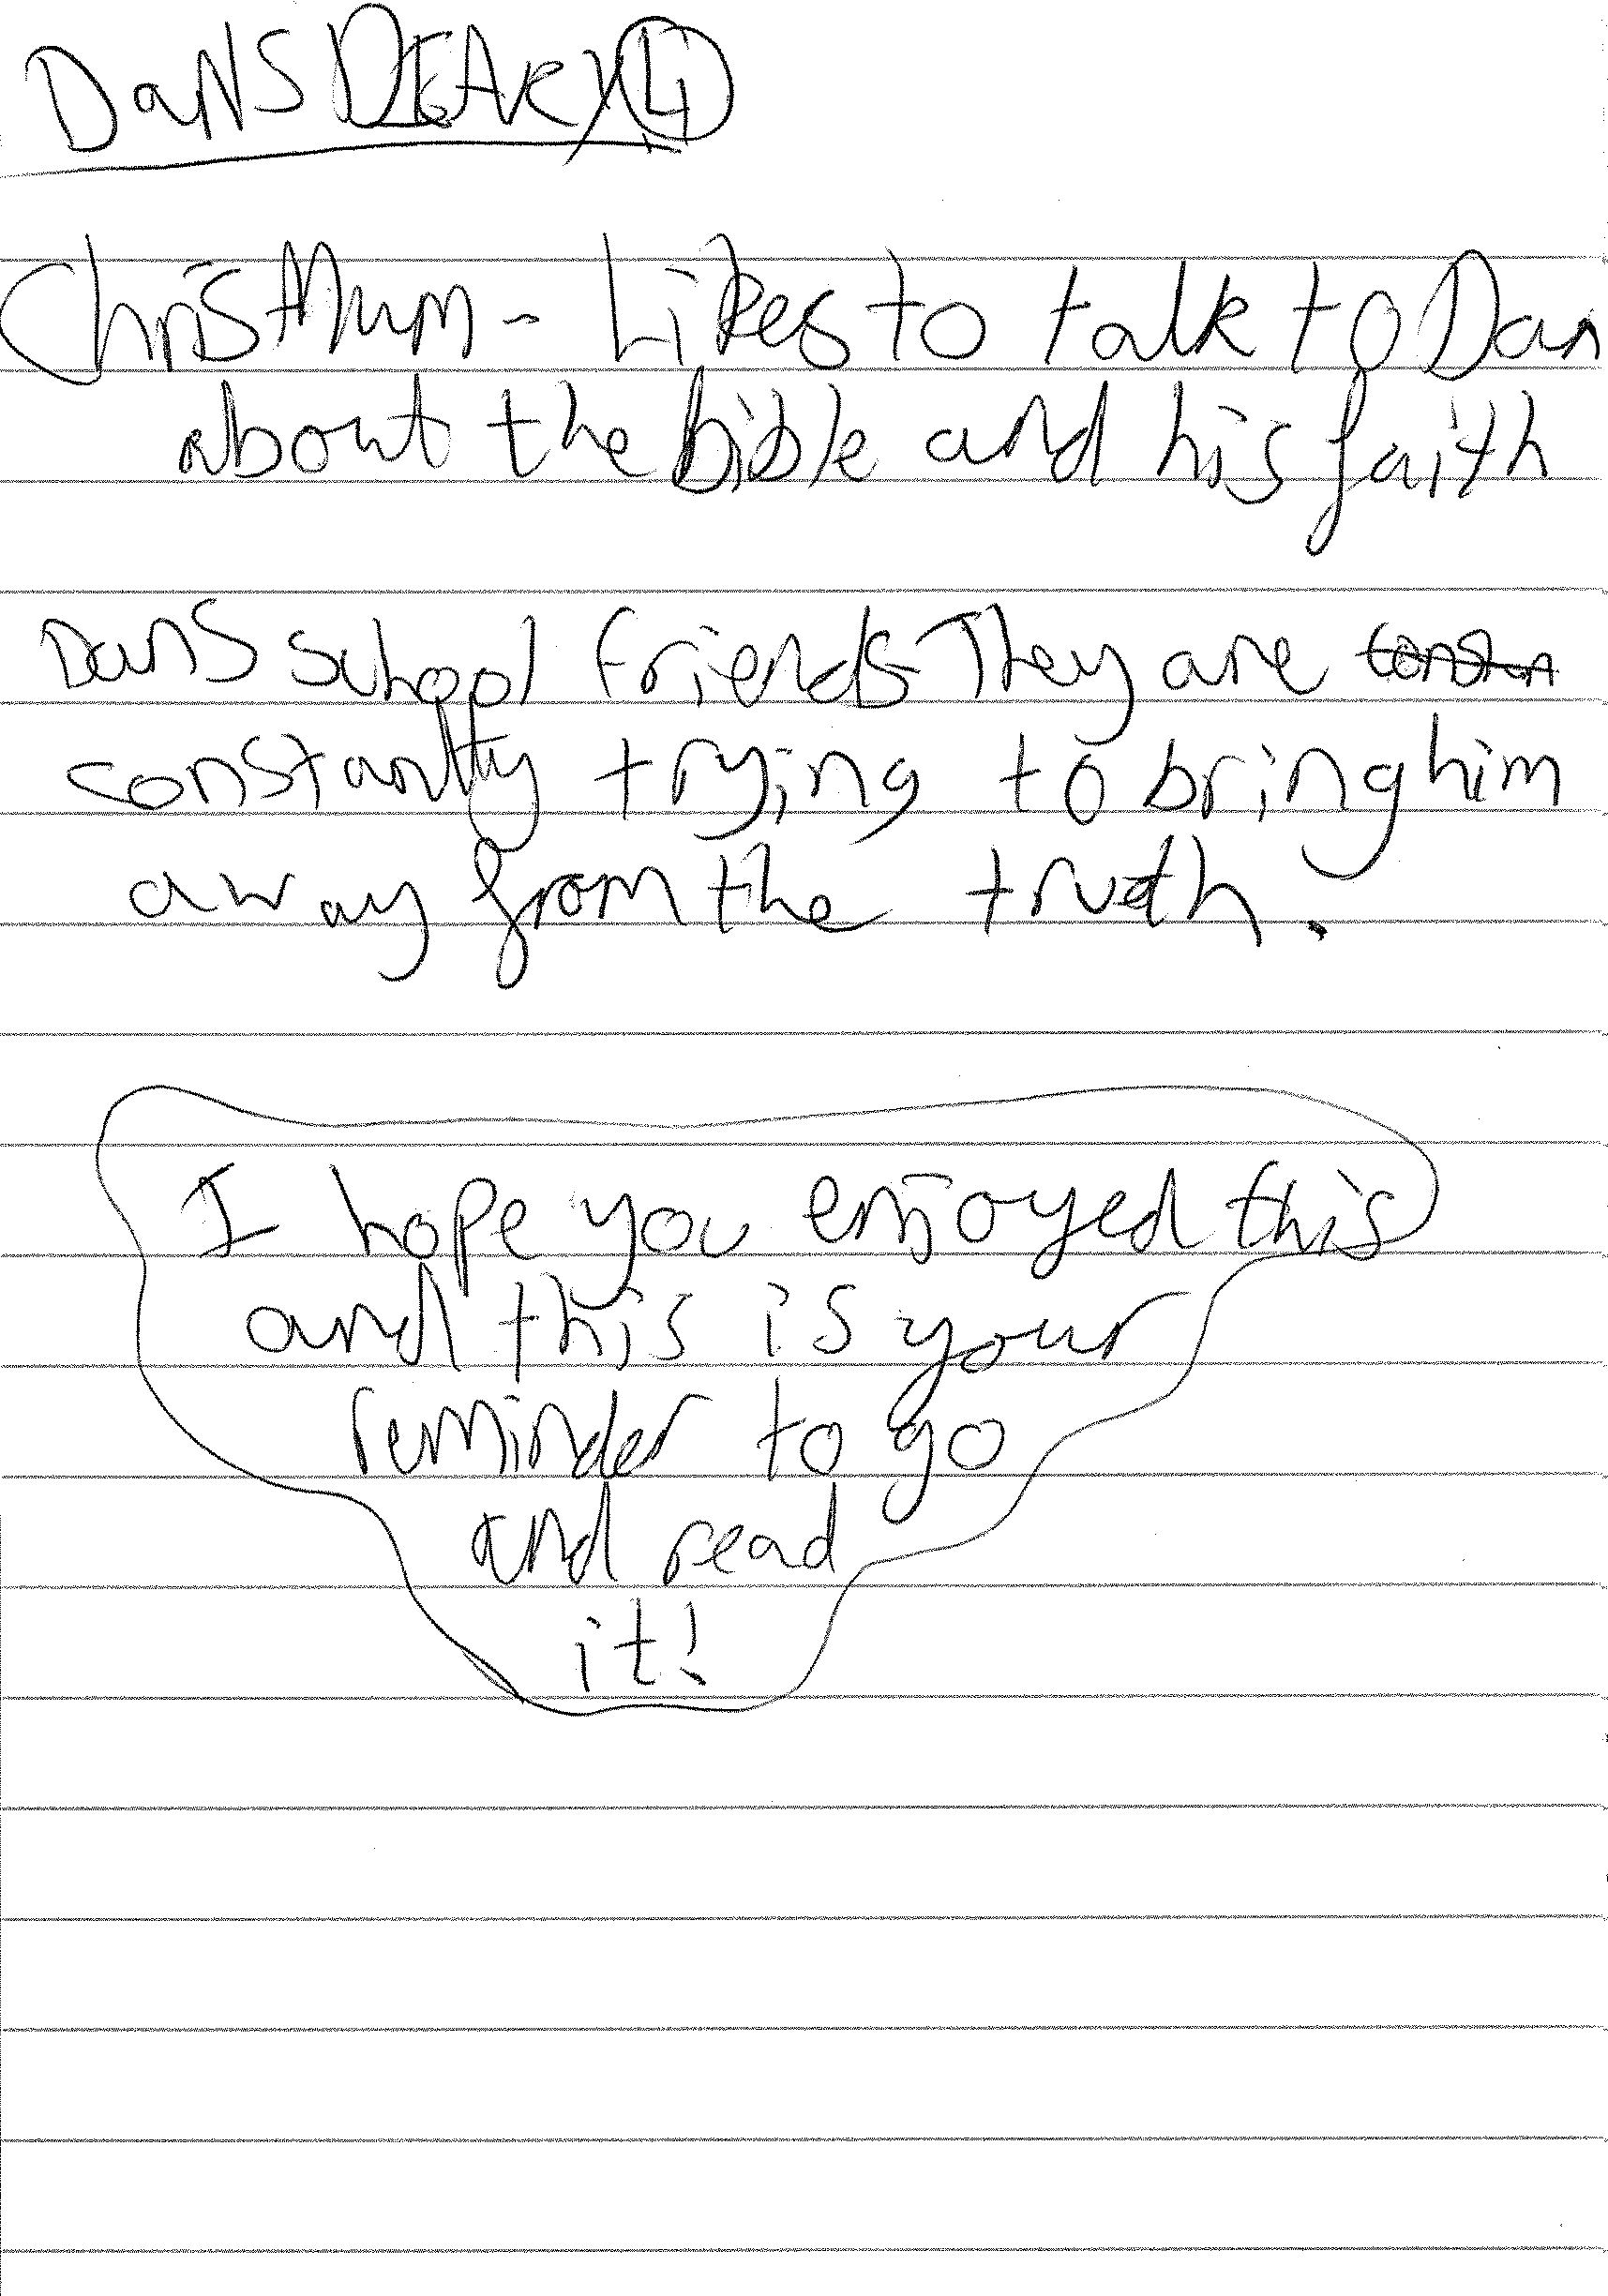 DaNS DIEARY 4
Chris Mum - Likes to talk to Dan
about the bible and his faith
Dans School friends - They are constan
constantly trying to bring him
away from the truth.
I hope you enjoyed this
and this is your
reminder to go
and read
it!